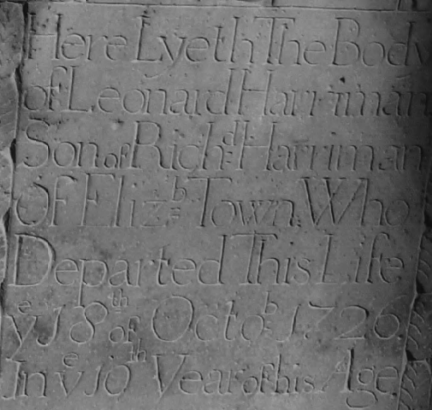 Here Lyeth The Body
of Leonard Harriman
Son of Richd: Harriman
Of Eliz.b: Town. Who
Departed This Life
ye 18th of Octob: 1726.
In ye 10th Year of his Age.